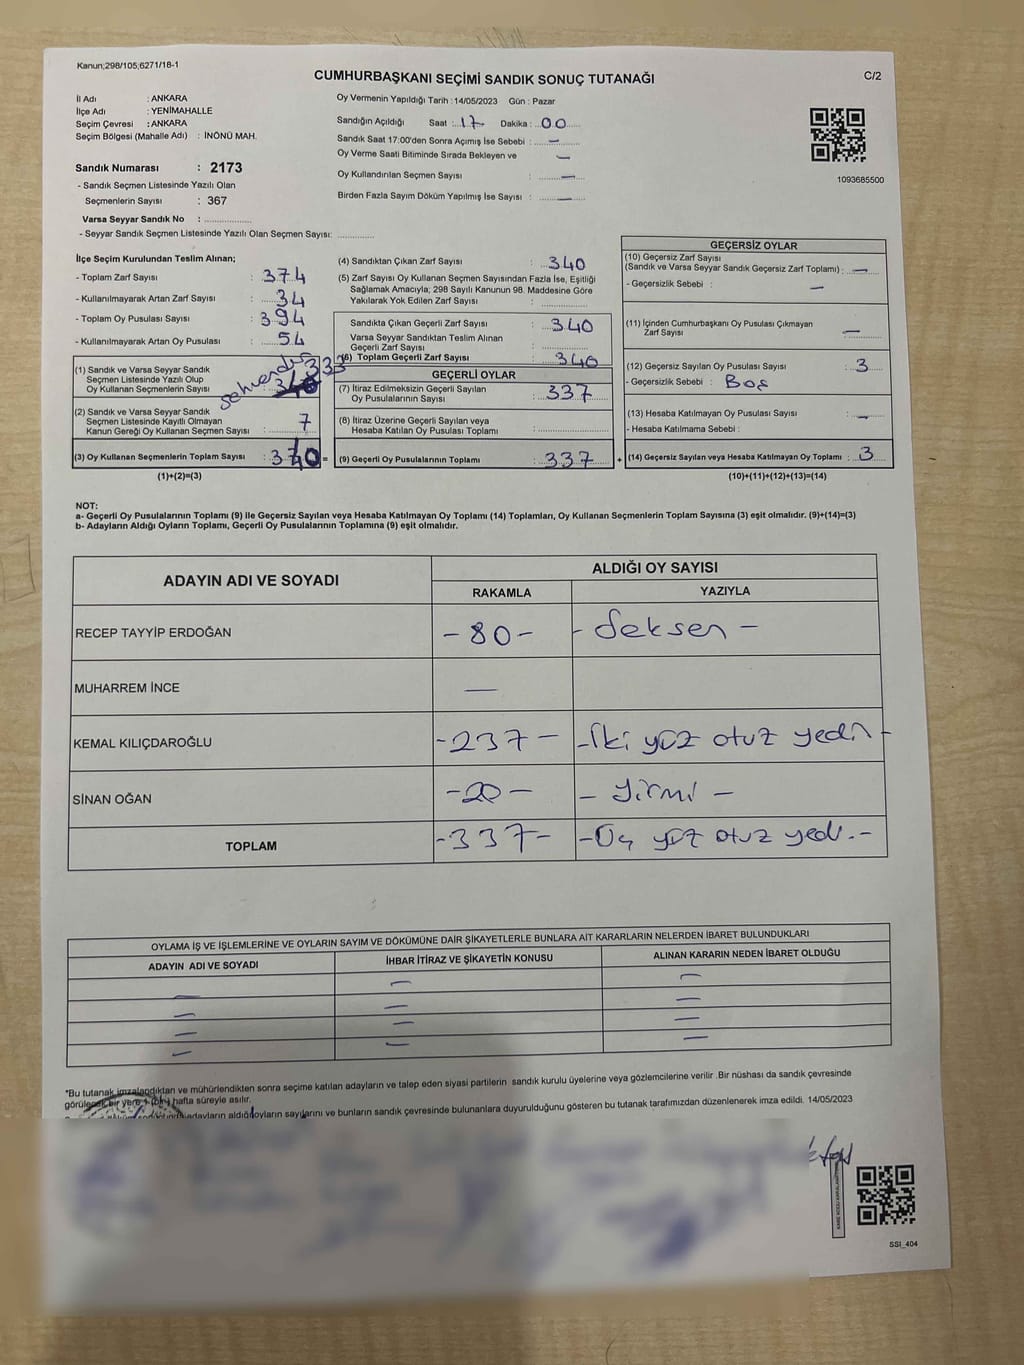 Kanun;298/105;6271/18-1
CUMHURBAŞKANI SEÇİMİ SANDIK SONUÇ TUTANAĞI
C/2
İl Adı : ANKARA
İlçe Adı : YENİMAHALLE
Seçim Çevresi : ANKARA
Seçim Bölgesi (Mahalle Adı) : İNÖNÜ MAH.
Sandık Numarası : 2173
- Sandık Seçmen Listesinde Yazılı Olan
Seçmenlerin Sayısı : 367
Varsa Seyyar Sandık No :
- Seyyar Sandık Seçmen Listesinde Yazılı Olan Seçmen Sayısı:
Oy Vermenin Yapıldığı Tarih : 14/05/2023 Gün : Pazar
Sandığın Açıldığı Saat : 17 Dakika : 00
Sandık Saat 17:00'den Sonra Açımış İse Sebebi : —
Oy Verme Saati Bitiminde Sırada Bekleyen ve —
Oy Kullandırılan Seçmen Sayısı : —
Birden Fazla Sayım Döküm Yapılmış İse Sayısı : —
1093685500
İlçe Seçim Kurulundan Teslim Alınan;
- Toplam Zarf Sayısı : 374
- Kullanılmayarak Artan Zarf Sayısı : 34
- Toplam Oy Pusulası Sayısı : 394
- Kullanılmayarak Artan Oy Pusulası : 54
(1) Sandık ve Varsa Seyyar Sandık
Seçmen Listesinde Yazılı Olup
Oy Kullanan Seçmenlerin Sayısı : 333
(2) Sandık ve Varsa Seyyar Sandık
Seçmen Listesinde Kayıtlı Olmayan
Kanun Gereği Oy Kullanan Seçmen Sayısı : 7
(3) Oy Kullanan Seçmenlerin Toplam Sayısı : 340 =
(1)+(2)=(3)
(4) Sandıktan Çıkan Zarf Sayısı : 340
(5) Zarf Sayısı Oy Kullanan Seçmen Sayısından Fazla İse, Eşitliği
Sağlamak Amacıyla; 298 Sayılı Kanunun 98. Maddesine Göre
Yakılarak Yok Edilen Zarf Sayısı :
Sandıkta Çıkan Geçerli Zarf Sayısı : 340
Varsa Seyyar Sandıktan Teslim Alınan
Geçerli Zarf Sayısı :
(6) Toplam Geçerli Zarf Sayısı : 340
GEÇERLİ OYLAR
(7) İtiraz Edilmeksizin Geçerli Sayılan
Oy Pusulalarının Sayısı : 337
(8) İtiraz Üzerine Geçerli Sayılan veya
Hesaba Katılan Oy Pusulası Toplamı :
(9) Geçerli Oy Pusulalarının Toplamı : 337 +
GEÇERSİZ OYLAR
(10) Geçersiz Zarf Sayısı
(Sandık ve Varsa Seyyar Sandık Geçersiz Zarf Toplamı) : —
- Geçersizlik Sebebi : —
(11) İçinden Cumhurbaşkanı Oy Pusulası Çıkmayan
Zarf Sayısı : —
(12) Geçersiz Sayılan Oy Pusulası Sayısı : 3
- Geçersizlik Sebebi : Boş
(13) Hesaba Katılmayan Oy Pusulası Sayısı : —
- Hesaba Katılmama Sebebi :
(14) Geçersiz Sayılan veya Hesaba Katılmayan Oy Toplamı : 3
(10)+(11)+(12)+(13)=(14)
NOT:
a- Geçerli Oy Pusulalarının Toplamı (9) ile Geçersiz Sayılan veya Hesaba Katılmayan Oy Toplamı (14) Toplamları, Oy Kullanan Seçmenlerin Toplam Sayısına (3) eşit olmalıdır. (9)+(14)=(3)
b- Adayların Aldığı Oyların Toplamı, Geçerli Oy Pusulalarının Toplamına (9) eşit olmalıdır.
ADAYIN ADI VE SOYADI
ALDIĞI OY SAYISI
RAKAMLA YAZIYLA
RECEP TAYYİP ERDOĞAN - 80 - - Seksen -
MUHARREM İNCE —
KEMAL KILIÇDAROĞLU - 237 - - İki yüz otuz yedi -
SİNAN OĞAN - 20 - - Yirmi -
TOPLAM - 337 - - Üç yüz otuz yedi. -
OYLAMA İŞ VE İŞLEMLERİNE VE OYLARIN SAYIM VE DÖKÜMÜNE DAİR ŞİKAYETLERLE BUNLARA AİT KARARLARIN NELERDEN İBARET BULUNDUKLARI
ADAYIN ADI VE SOYADI İHBAR İTİRAZ VE ŞİKAYETİN KONUSU ALINAN KARARIN NEDEN İBARET OLDUĞU
— — —
— — —
— — —
— — —
*Bu tutanak imzalandıktan ve mühürlendikten sonra seçime katılan adayların ve talep eden siyasi partilerin sandık kurulu üyelerine veya gözlemcilerine verilir .Bir nüshası da sandık çevresinde
görülecek bir yere 1 (bir) hafta süreyle asılır.
adayların aldığı oyların sayılarını ve bunların sandık çevresinde bulunanlara duyurulduğunu gösteren bu tutanak tarafımızdan düzenlenerek imza edildi. 14/05/2023
SSI_404